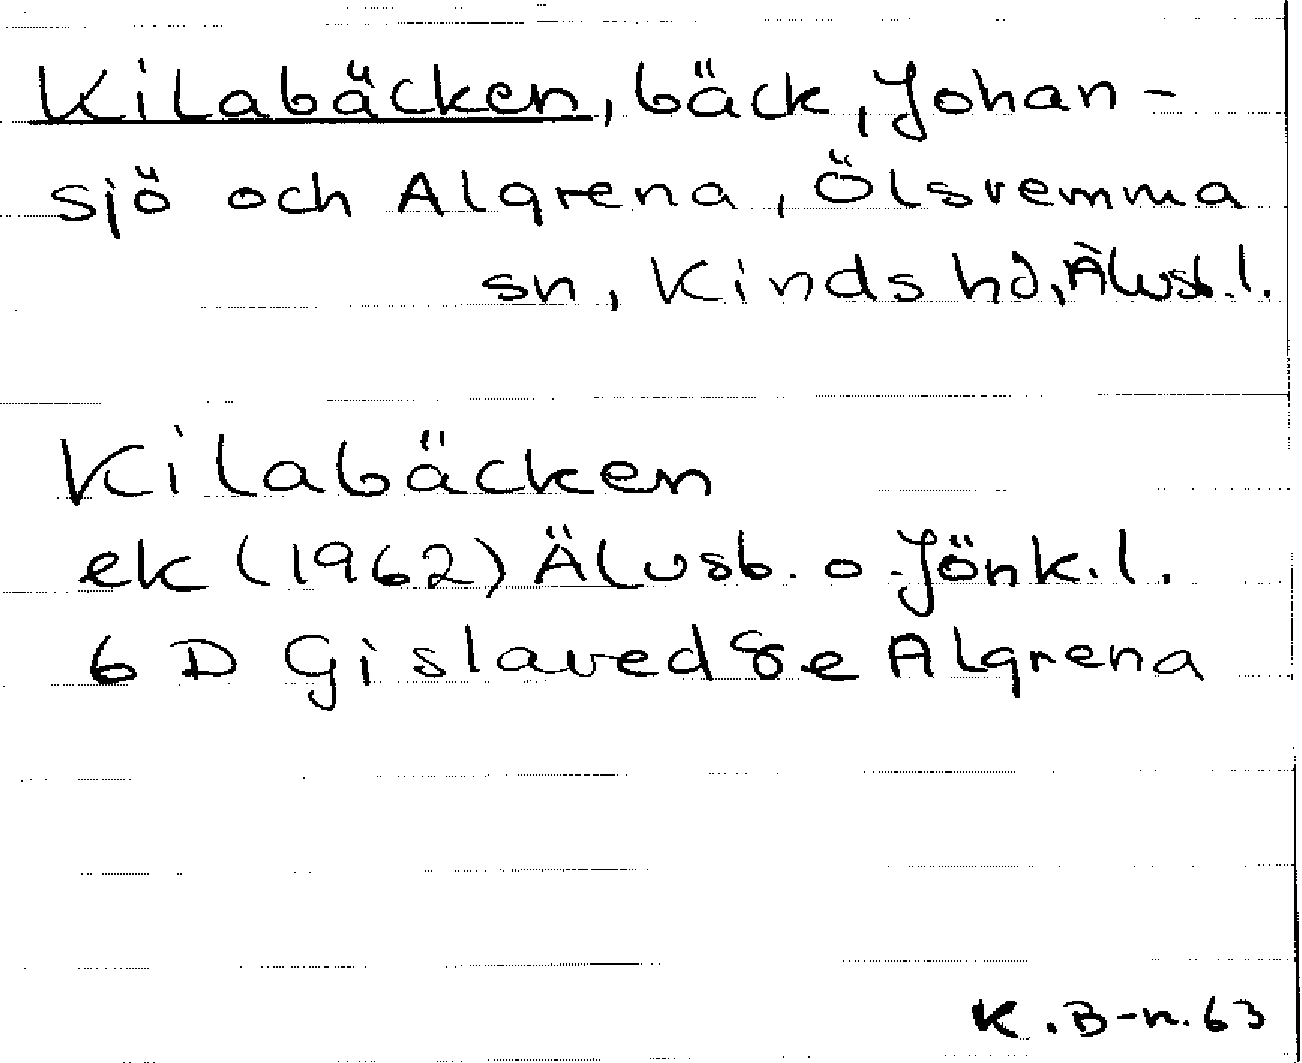 Kilabäcken, bäck, Johan-
sjö och Algrena, Ölsremma
sn, Kinds hd, Älvsb.l.
Kilabäcken
ek (1962) Älvsb. o. Jönk.l.
6 D Gislaved 8e Algrena
K.B-n.63